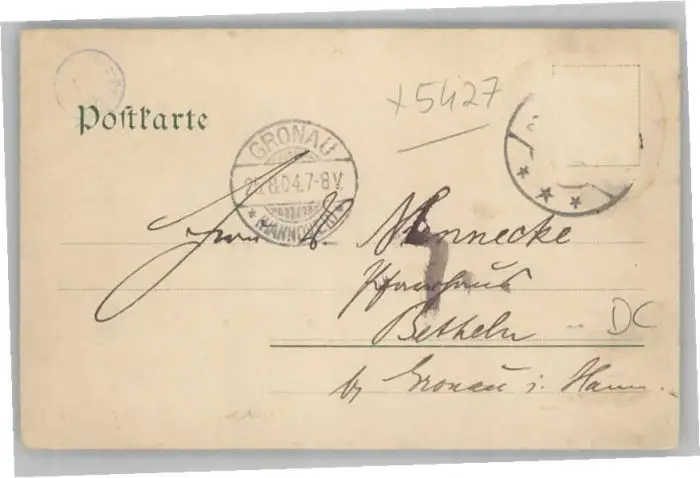 Postkarte
x5427
GRONAU
25.8.04.7-8V.
* HANNOVER *
Nonnecke
Pfarrhaus
Betheln
DC
by Gronau i. Hann.